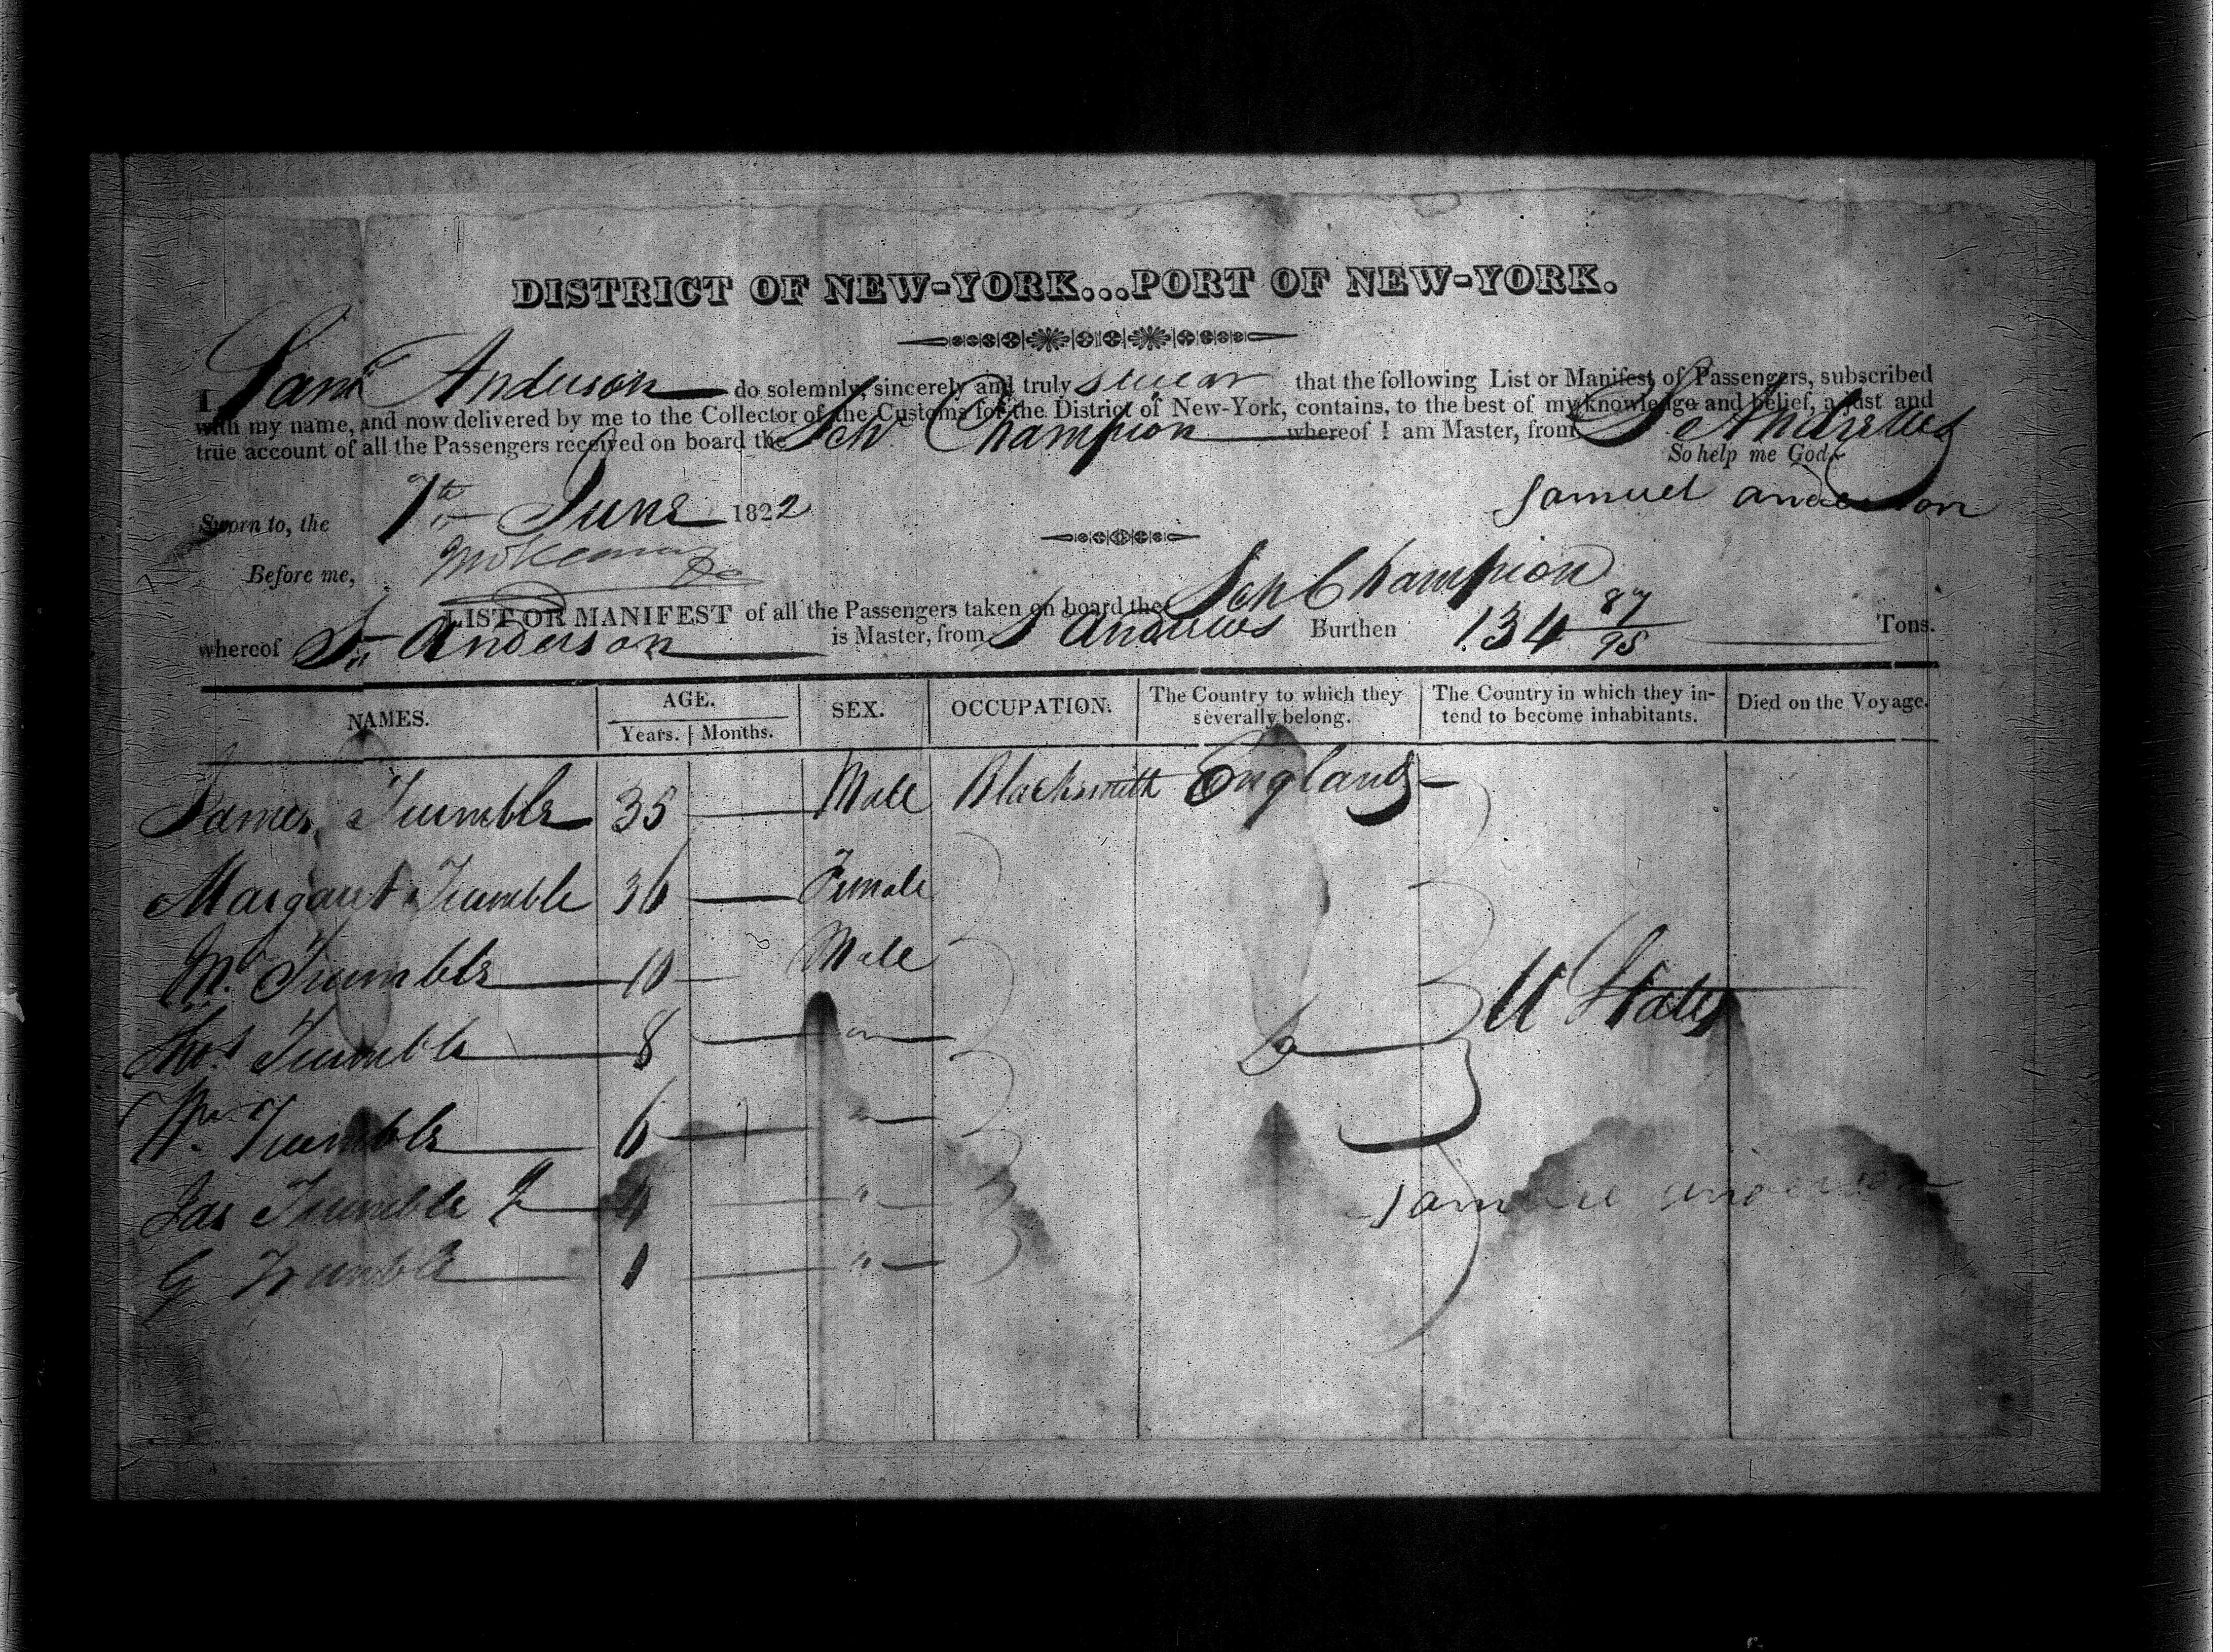 DISTRICT OF NEW-YORK...PORT OF NEW-YORK.
I Saml Anderson do solemnly, sincerely and truly swear that the following List or Manifest of Passengers, subscribed
with my name, and now delivered by me to the Collector of the Customs for the District of New-York, contains, to the best of my knowledge and belief, a just and
true account of all the Passengers received on board the Schr Champion whereof I am Master, from St Andrews
So help me God.
Sworn to, the 7th June 1822
Samuel anderson
Before me,
LIST OR MANIFEST of all the Passengers taken on board the Sch Champion
whereof Sn Anderson is Master, from St Andrews Burthen 134 87/95 Tons.
NAMES. AGE. SEX. OCCUPATION. The Country to which they severally belong. The Country in which they intend to become inhabitants. Died on the Voyage.
Years. Months.
James Trumble 35 Male Blacksmith England
Margaret Trumble 36 Female
Trumble 10 Male
U States
Thos Trumble 8
Wm Trumble 6
Jas Trumble 4 "
Samuel anderson
G Trumble 1 "